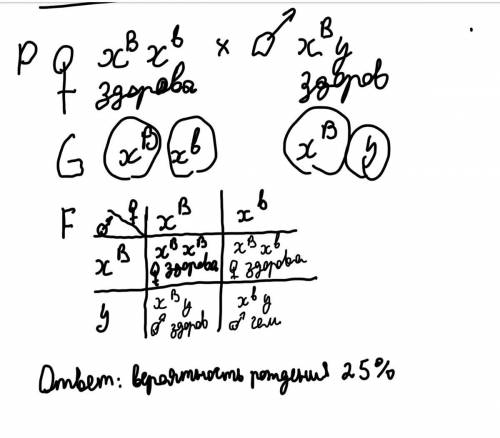 P ♀ xᴮ xᵇ × ♂ xᴮ y
здорова здоров
G xᴮ xᵇ xᴮ y
F ♂ ♀ xᴮ xᵇ
xᴮ xᴮ xᴮ xᴮ xᵇ
♀ здорова ♀ здорова
y xᴮ y xᵇ y
♂ здоров ♂ гем
Ответ: вероятность рождения 25%